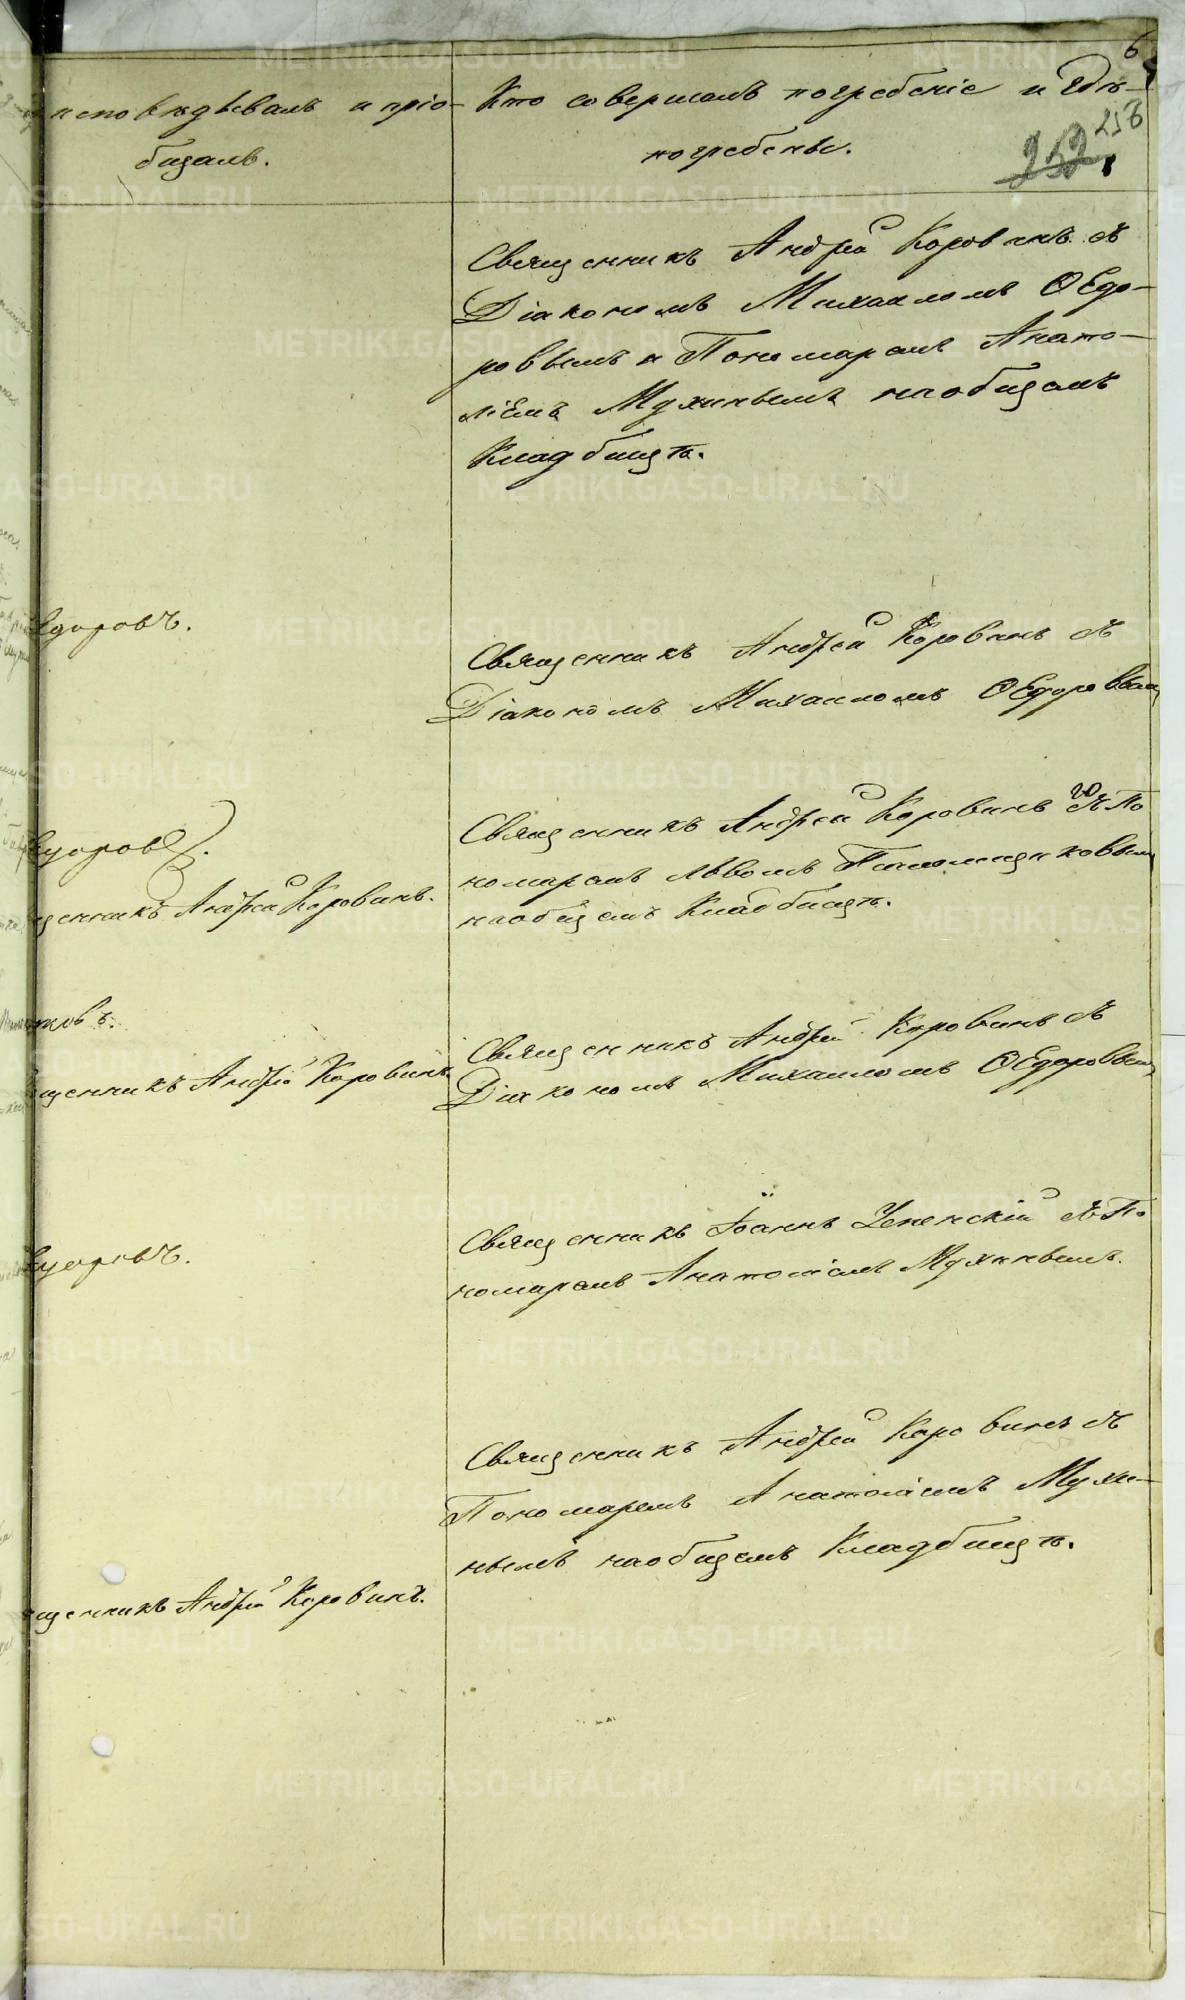 6
исповѣдывалъ и пріо-
бщалъ.
Кто совершалъ погребеніе и гдѣ
погребены.
252 258
Священникъ Андрей Коровинъ съ
Діакономъ Михаиломъ Ѳедо-
ровымъ и Пономаремъ Анато-
ліемъ Мухинымъ наобщемъ
Кладбищѣ.
едоровъ.
Священникъ Андрей Коровинъ съ
Діакономъ Михаиломъ Ѳедоровым
едоровъ.
щенникъ Андрей Коровинъ.
Священникъ Андрей Коровинъ съ По
номаремъ Львомъ
наобщемъ Кладбищѣ.
ковъ.
щенникъ Андрей Коровинъ
Священникъ Андрей Коровинъ съ
Діакономъ Михаиломъ Ѳедоровым
едоровъ.
Священникъ Іоаннъ Успенскій съ По
номаремъ Анатоліемъ Мухинымъ.
Священникъ Андрей Коровинъ съ
Пономаремъ Анатоліемъ Мухи-
нымъ наобщемъ Кладбищѣ.
щенникъ Андрей Коровинъ.
METRIKI.GASO-URAL.RU